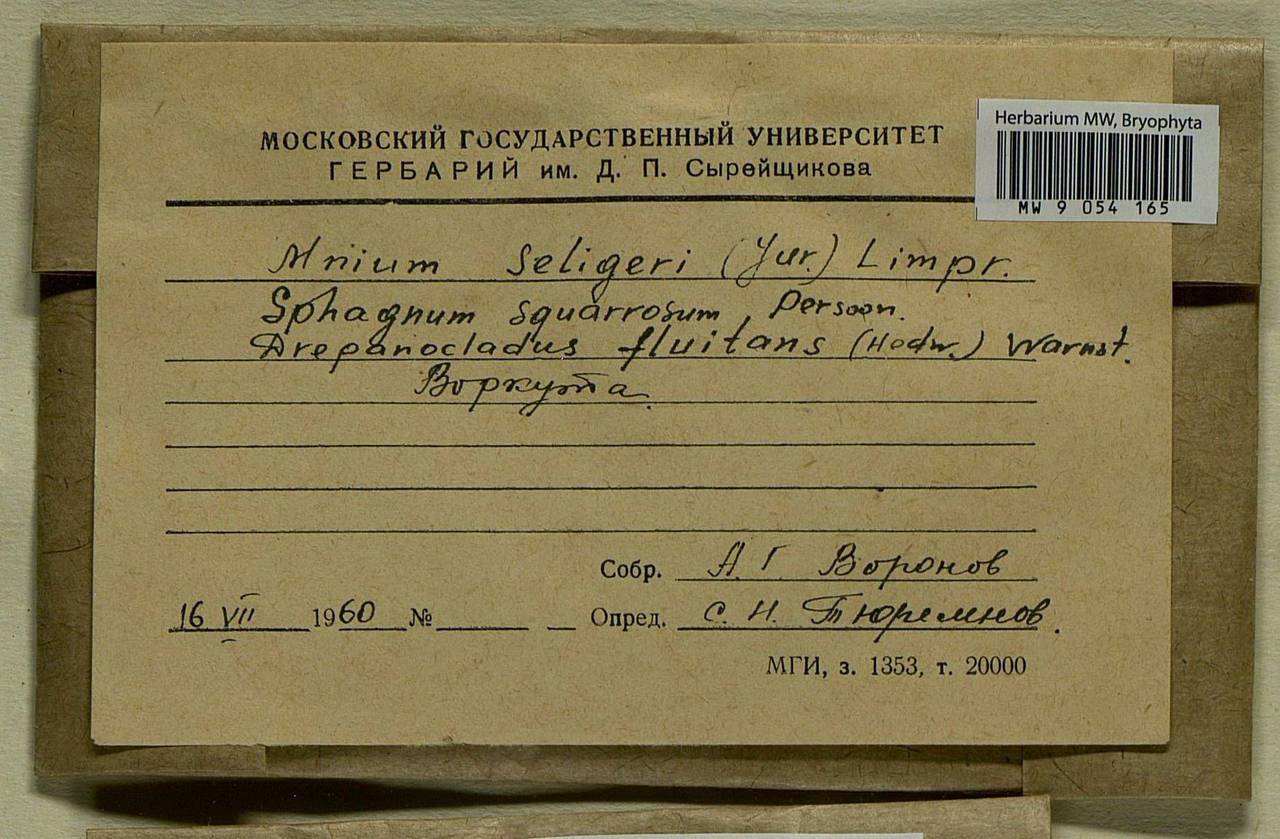 МОСКОВСКИЙ ГОСУДАРСТВЕННЫЙ УНИВЕРСИТЕТ
ГЕРБАРИЙ им. Д. П. Сырейщикова
Herbarium MW, Bryophyta
MW 9 054 165
Mnium Seligeri (Jur.) Limpr.
Sphagnum squarrosum Persoon.
Drepanocladus fluitans (Hedw.) Warnst.
Воркута.
Собр. А. Г. Воронов
16 VII 1960 № Опред. С. Н. Тюремнов.
МГИ, з. 1353, т. 20000